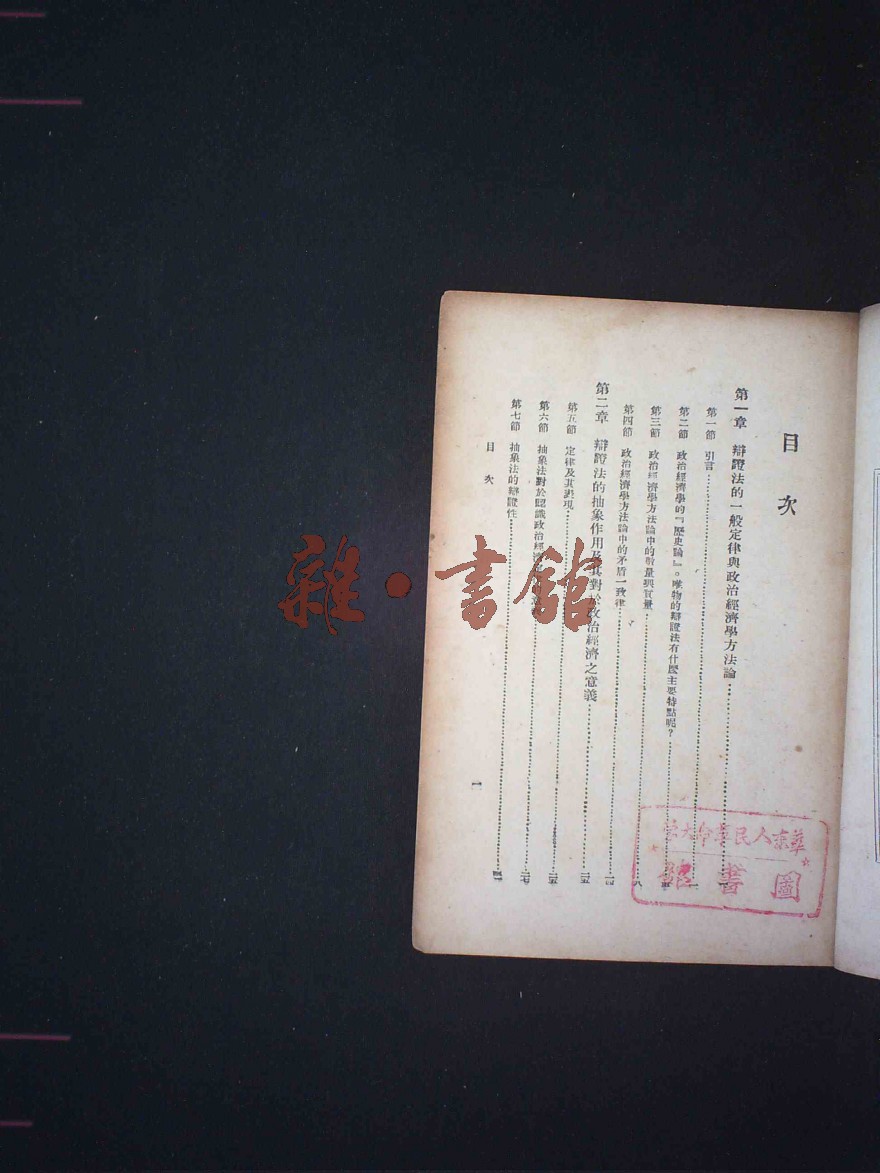 目次
第一章 辯證法的一般定律與政治經濟學方法論
第一節 引言
第二節 政治經濟學的『歷史論』。唯物的辯證法有什麼主要特點呢？
第三節 政治經濟學方法論中的數量與質量
第四節 政治經濟學方法論中的矛盾一致律 一四
第二章 辯證法的抽象作用及其對於政治經濟之意義 一五
第五節 定律及其表現 一五
第六節 抽象法對於認識政治經濟 二七
第七節 抽象法的辯證性
目次
一
華東人民革命大學
圖書館
雜·書館